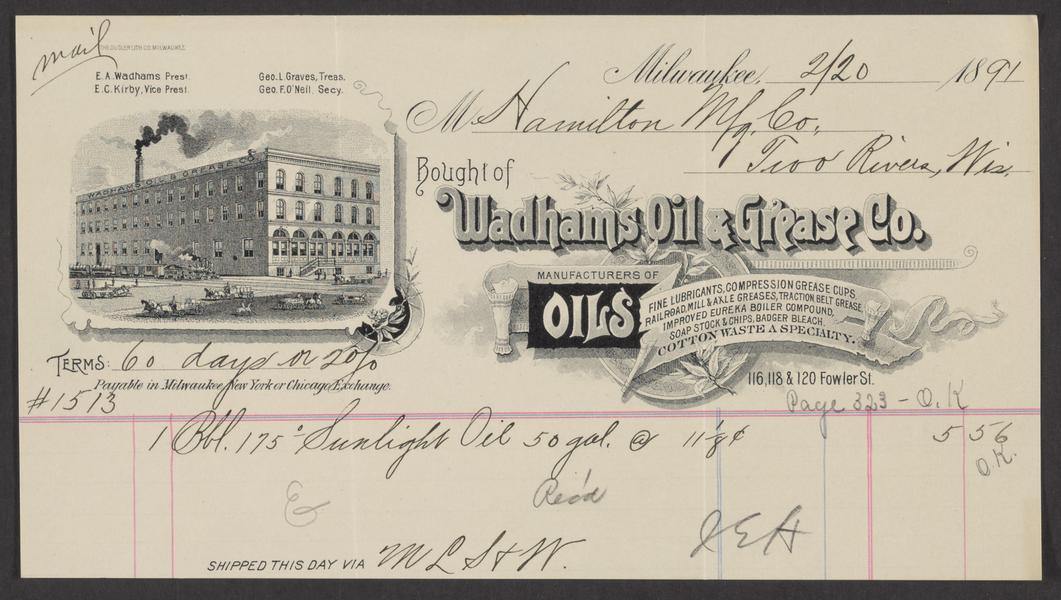 mail
THE GUGLER LITH. CO. MILWAUKEE.
E. A. Wadhams Prest.
E. C. Kirby, Vice Prest.
Geo. L. Graves, Treas.
Geo. F. O'Neil. Secy.
Milwaukee, 2/20 1891
M Hamilton Mfg. Co.,
Two Rivers, Wis.
WADHAMS OIL & GREASE CO.
Bought of
Wadhams Oil & Grease Co.
MANUFACTURERS OF
OILS
FINE LUBRICANTS, COMPRESSION GREASE CUPS,
RAILROAD, MILL & AXLE GREASES, TRACTION BELT GREASE,
IMPROVED EUREKA BOILER COMPOUND,
SOAP STOCK & CHIPS, BADGER BLEACH.
COTTON WASTE A SPECIALTY.
116, 118 & 120 Fowler St.
TERMS: 60 days or 2%
Payable in Milwaukee, New York or Chicago Exchange.
#1513
Page 323 - O.K
1 Bbl. 175° Sunlight Oil 50 gal. @ 11⅛¢ 5 56
O.K.
Rec'd
JEH
SHIPPED THIS DAY VIA M L S & W.